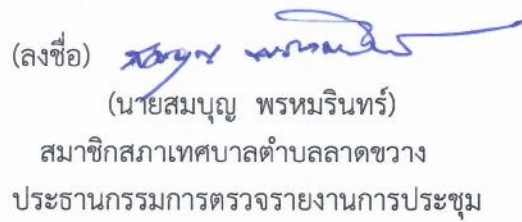 (ลงชื่อ)
(นายสมบุญ พรหมรินทร์)
สมาชิกสภาเทศบาลตำบลลาดขวาง
ประธานกรรมการตรวจรายงานการประชุม